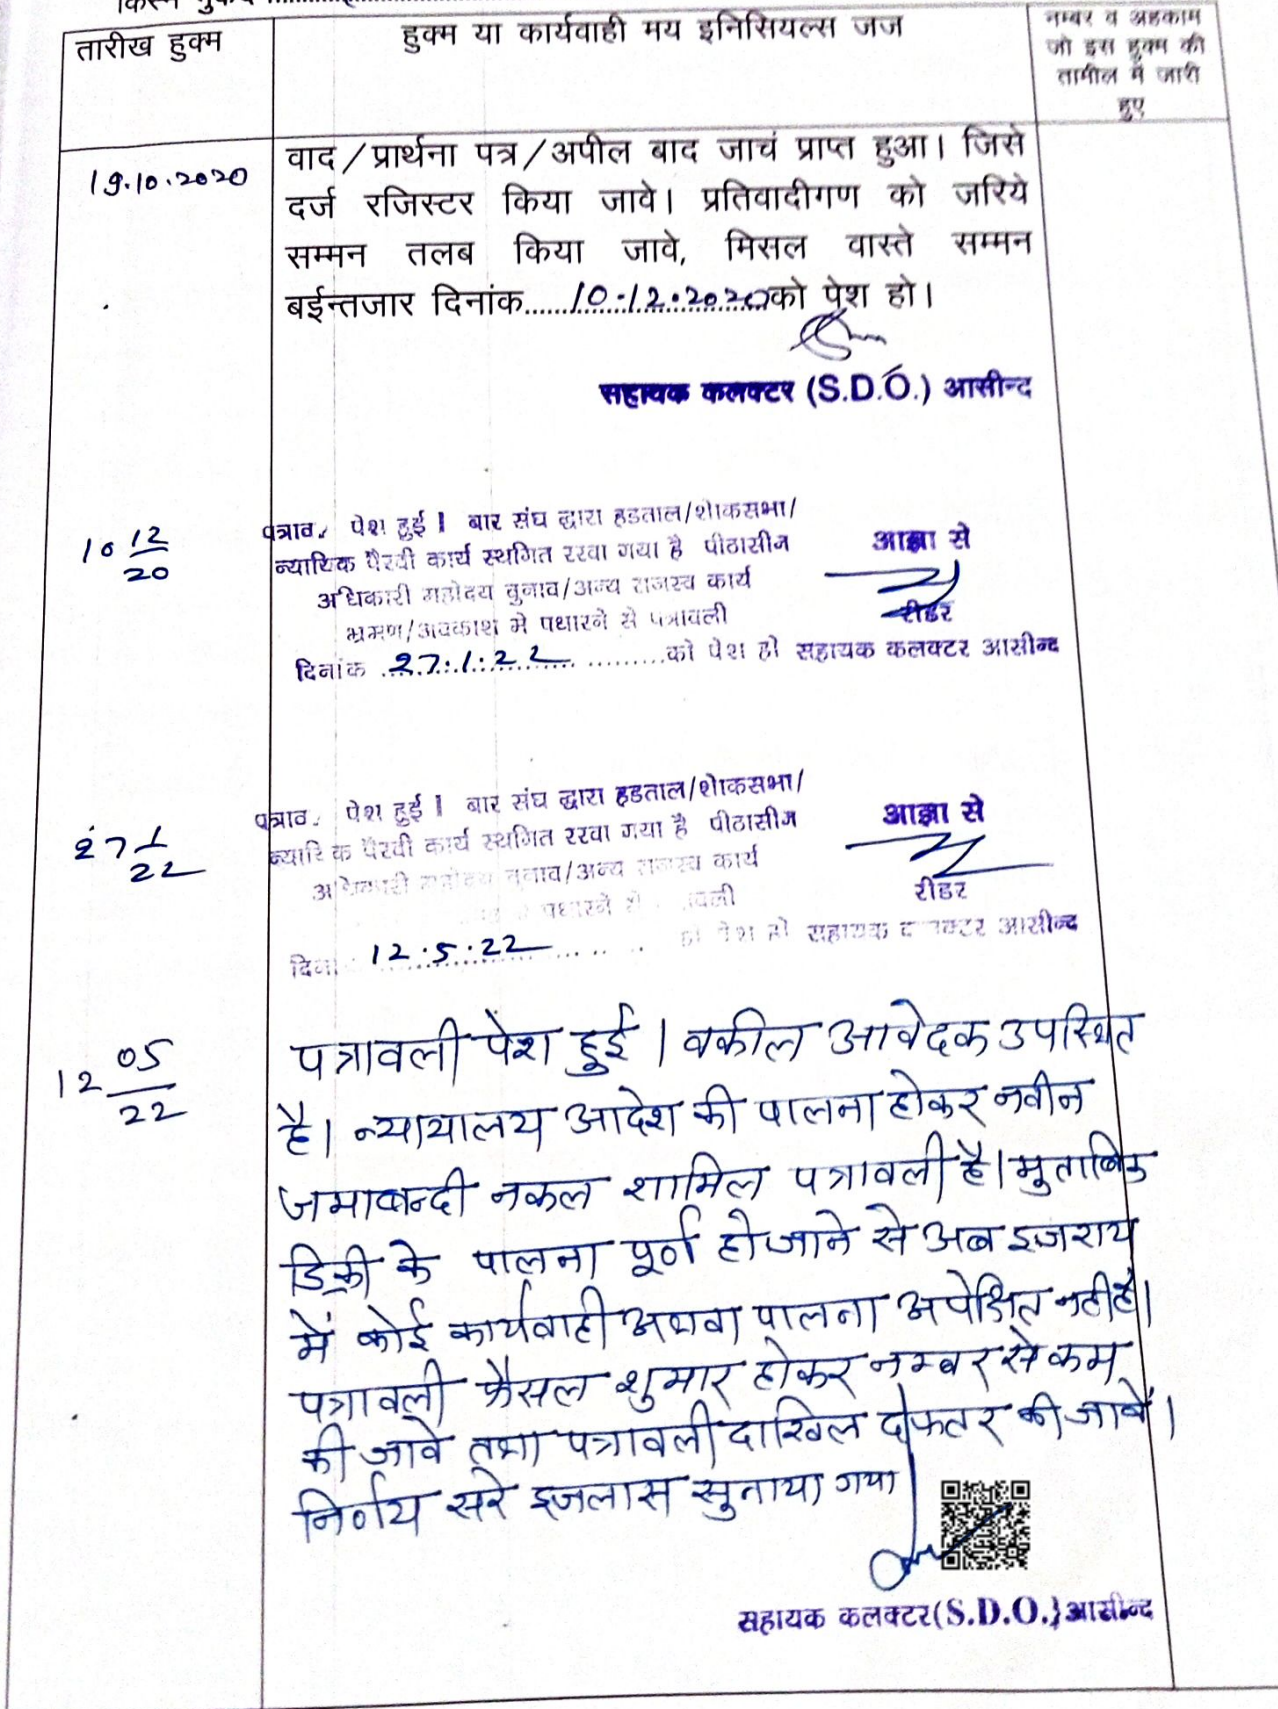 तारीख हुक्म
हुक्म या कार्यवाही मय इनिसियल्स जज
नम्बर व अहकाम
जो इस हुक्म की
तामील में जारी
हुए
19.10.2020
वाद/प्रार्थना पत्र/अपील बाद जाचं प्राप्त हुआ। जिसे
दर्ज रजिस्टर किया जावे। प्रतिवादीगण को जरिये
सम्मन तलब किया जावे, मिसल वास्ते सम्मन
बईन्तजार दिनांक.....10.12.2020को पेश हो।
सहायक कलक्टर (S.D.O.) आसीन्द
10 12/20
पत्राव. पेश हुई। बार संघ द्वारा हडताल/शोकसभा/
न्यायिक पैरवी कार्य स्थगित रखा गया है पीठासीन
अधिकारी महोदय चुनाव/अन्य राजस्व कार्य
भ्रमण/अवकाश मे पधारने से पत्रावली
दिनांक 27.1.22 ..........को पेश हो
आज्ञा से
रीडर
सहायक कलक्टर आसीन्द
27 1/22
पत्राव. पेश हुई। बार संघ द्वारा हडताल/शोकसभा/
न्यायिक पैरवी कार्य स्थगित रखा गया है पीठासीन
अधिकारी महोदय चुनाव/अन्य राजस्व कार्य
पधारने से
12.5.22 को पेश हो
आज्ञा से
रीडर
सहायक कलक्टर आसीन्द
12 05/22
पत्रावली पेश हुई। वकील आवेदक उपस्थित
है। न्यायालय आदेश की पालना होकर नवीन
जमाबन्दी नकल शामिल पत्रावली है। मुताबिक
डिक्री के पालना पूर्ण हो जाने से अब इजराय
में कोई कार्यवाही अथवा पालना अपेक्षित नही है।
पत्रावली फैसल शुमार होकर नम्बर से कम
की जावे तथा पत्रावली दाखिल दफतर की जावें।
निर्णय सरे इजलास सुनाया गया
सहायक कलक्टर(S.D.O.)आसीन्द